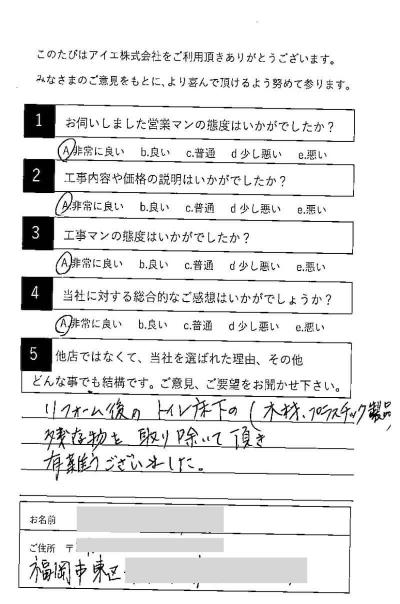 このたびはアイエ株式会社をご利用頂きありがとうございます。
みなさまのご意見をもとに、より喜んで頂けるよう努めて参ります。
1 お伺いしました営業マンの態度はいかがでしたか？
A.非常に良い b.良い c.普通 d少し悪い e.悪い
2 工事内容や価格の説明はいかがでしたか？
A.非常に良い b.良い c.普通 d少し悪い e.悪い
3 工事マンの態度はいかがでしたか？
A.非常に良い b.良い c.普通 d少し悪い e.悪い
4 当社に対する総合的なご感想はいかがでしょうか？
A.非常に良い b.良い c.普通 d少し悪い e.悪い
5 他店ではなくて、当社を選ばれた理由、その他
どんな事でも結構です。ご意見、ご要望をお聞かせ下さい。
リフォーム後の トイレ床下の(木材、プラスチック製品)
残存物を 取り除いて頂き
有難うございました。
お名前
ご住所 〒
福岡市東区